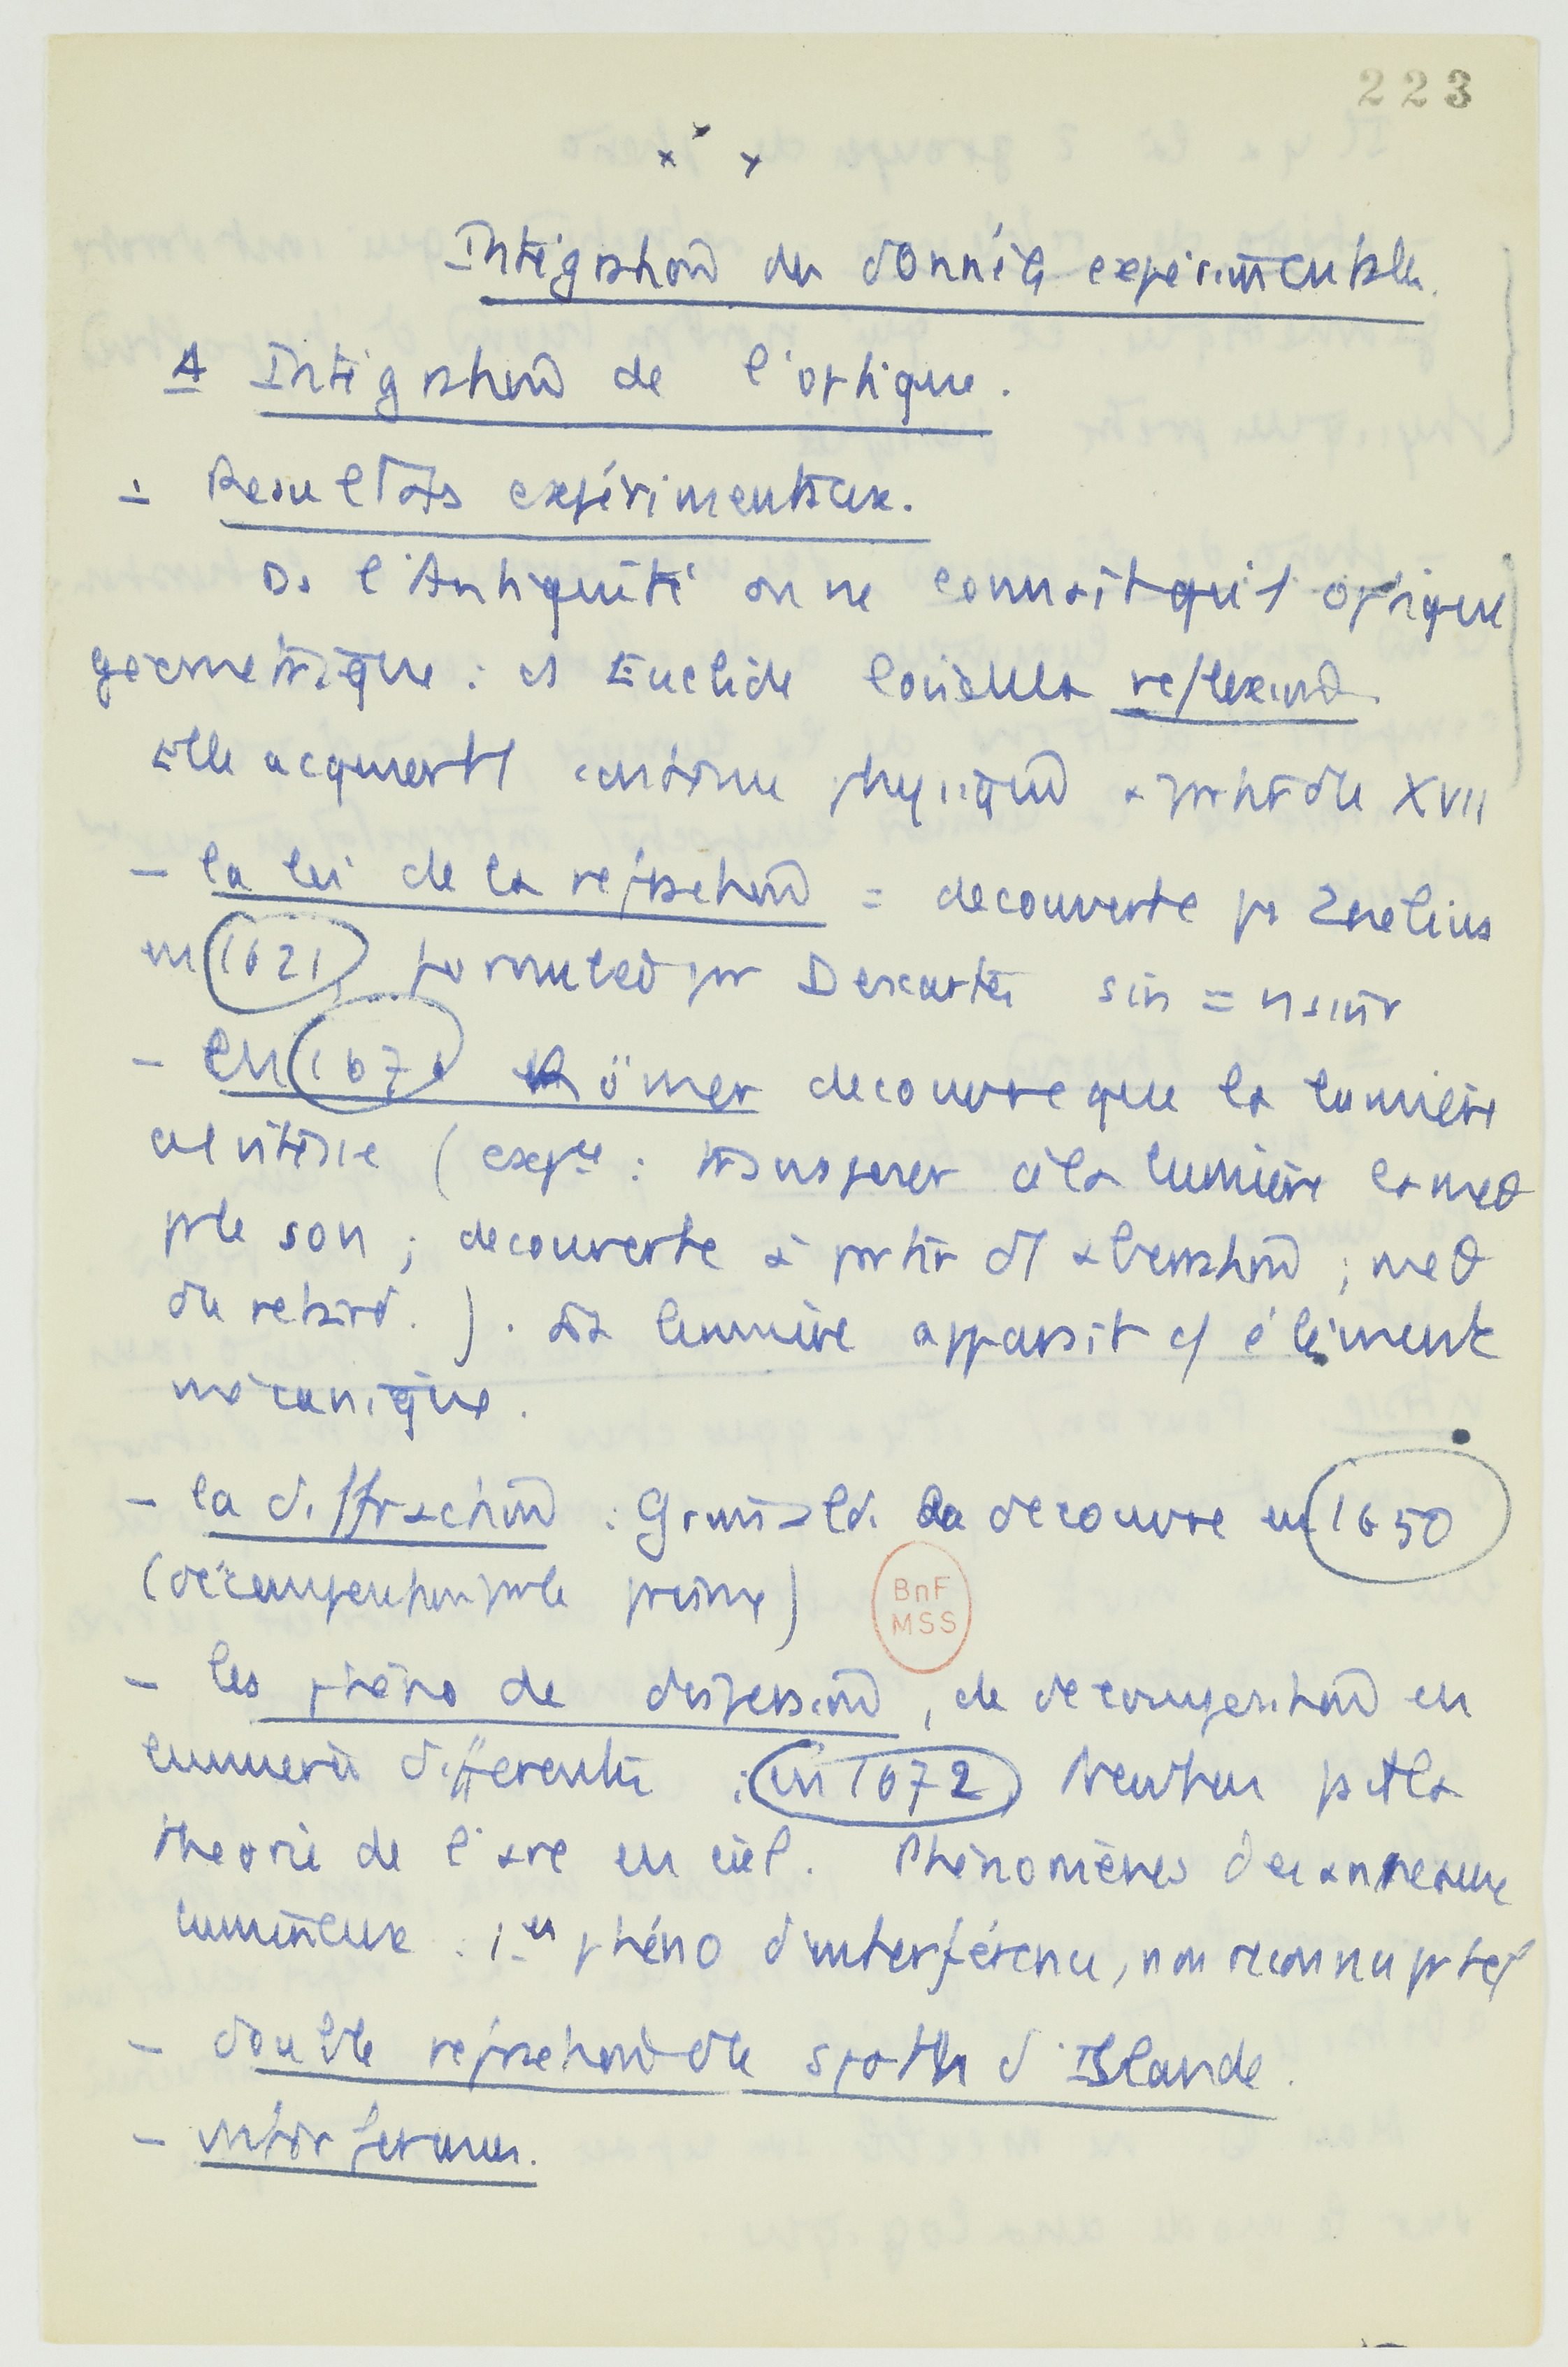 223
x x x
Intégration des données expérimentales.
A Intégration de l'optique.
- Resultats expérimentaux.
Ds l'Antiquité on ne connait qu'1 optique
géometrique : et Euclide la réflexion
Elle acquiert 1 physique a partir du XVII
- la loi de la réfraction = decouverte pr Snelius
en 1621, formulée par Descartes sin = n sin r
- En 167 Römer decouvre que la lumière
a 1 vitesse ( : transposer à la lumière la meth
pr le son ; decouverte à partir d'1 aberration ; meth
du retard. ) . La lumière apparait c/ élément
mécanique.
- la diffraction : Grimaldi la découvre en 1650
(décomposition par le prisme)
BnF
MSS
- les phéno de dispersion, de décomposition en
lumières différentes : en 1672 Newton fait la
theorie de l'arc en ciel. Phénomènes des anneaux
lumineux : 1er phéno d'interférence, non reconnu pr tel
- double réfraction du spath d'Islande.
- interférences.